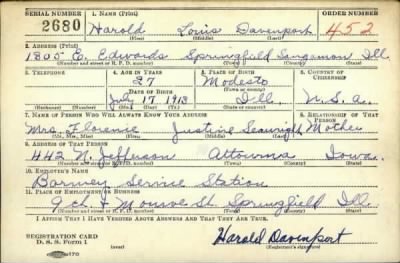 SERIAL NUMBER 1. NAME (Print) ORDER NUMBER
2680 Harold Louis Davenport 452
(First) (Middle) (Last)
2. ADDRESS (Print)
1805 E. Edwards Springfield Sangamon Ill.
(Number and street or R. F. D. number) (Town) (County) (State)
3. TELEPHONE 4. AGE IN YEARS 5. PLACE OF BIRTH 6. COUNTRY OF CITIZENSHIP
27 Modesto
DATE OF BIRTH (Town or county)
July 17 1913 Ill. U.S.A.
(Exchange) (Number) (Mo.) (Day) (Yr.) (State or country)
7. NAME OF PERSON WHO WILL ALWAYS KNOW YOUR ADDRESS 8. RELATIONSHIP OF THAT PERSON
Mrs. Florence Justine Seawright Mother
(Mr., Mrs., Miss) (First) (Middle) (Last)
9. ADDRESS OF THAT PERSON
442 N. Jefferson Ottumwa Iowa.
(Number and street or R. F. D. number) (Town) (County) (State)
10. EMPLOYER'S NAME
Barney Service Station
11. PLACE OF EMPLOYMENT OR BUSINESS
9th & Monroe St. Springfield Ill.
(Number and street or R. F. D. number) (Town) (County) (State)
I AFFIRM THAT I HAVE VERIFIED ABOVE ANSWERS AND THAT THEY ARE TRUE.
REGISTRATION CARD
D. S. S. Form 1 (over) Harold Davenport
(Registrant's signature)